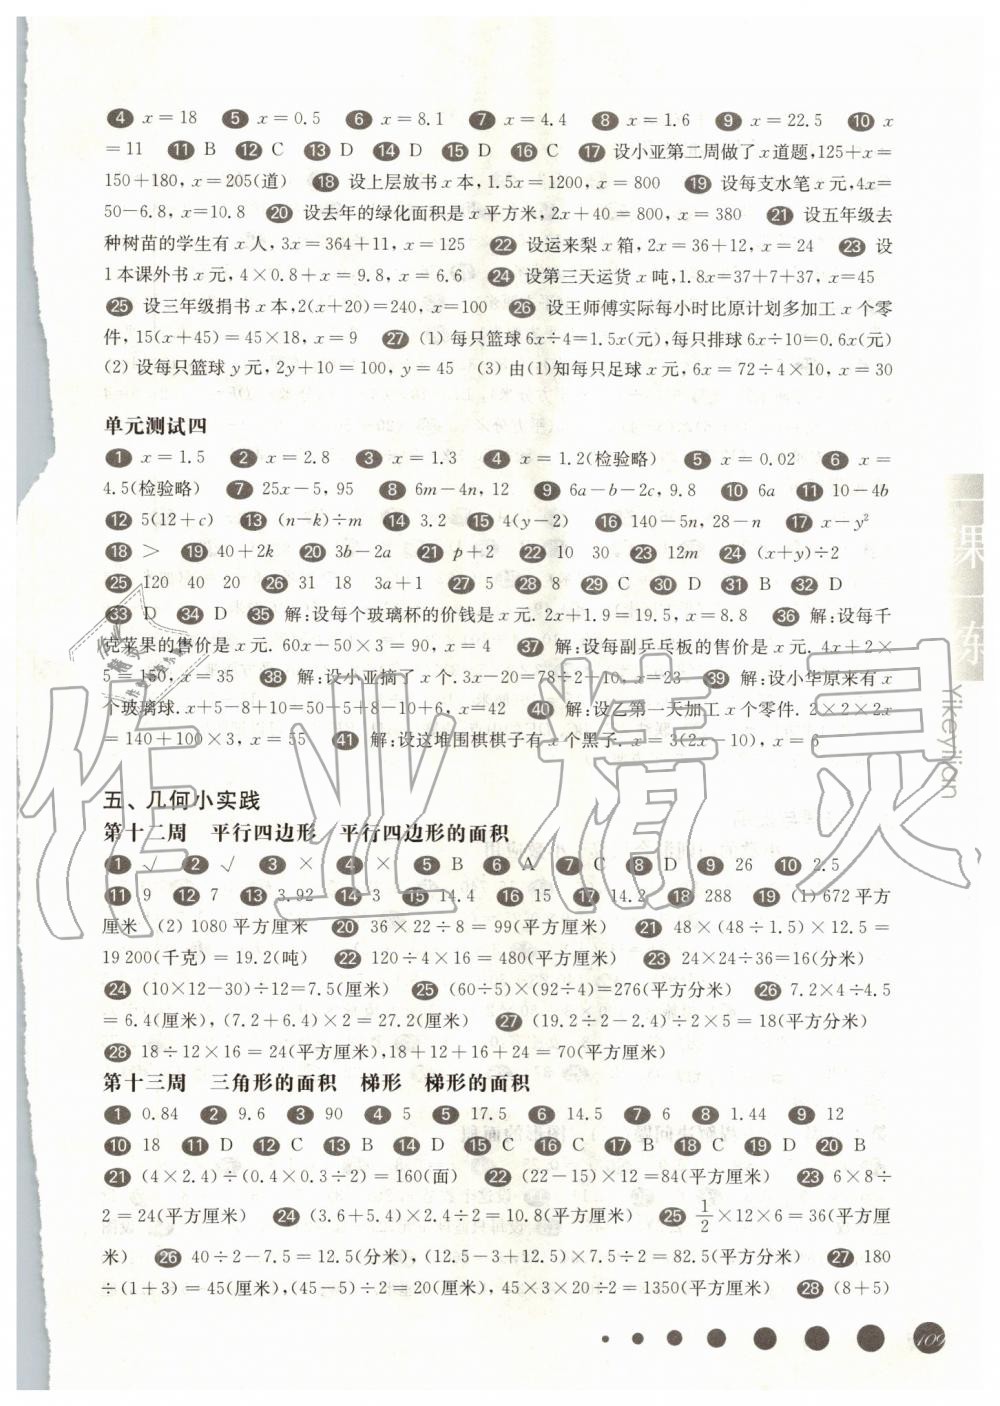 ④ x=18 ⑤ x=0.5 ⑥ x=8.1 ⑦ x=4.4 ⑧ x=1.6 ⑨ x=22.5 ⑩ x
=11 ⑪ B ⑫ C ⑬ D ⑭ D ⑮ D ⑯ C ⑰ 设小亚第二周做了x道题,125+x=
150+180, x=205(道) ⑱ 设上层放书x本,1.5x=1200, x=800 ⑲ 设每支水笔x元,4x=
50-6.8, x=10.8 ⑳ 设去年的绿化面积是x平方米,2x+40=800, x=380 ㉑ 设五年级去
种树苗的学生有x人,3x=364+11, x=125 ㉒ 设运来梨x箱,2x=36+12, x=24 ㉓ 设
1本课外书x元,4×0.8+x=9.8, x=6.6 ㉔ 设第三天运货x吨,1.8x=37+7+37, x=45
㉕ 设三年级捐书x本,2(x+20)=240, x=100 ㉖ 设王师傅实际每小时比原计划多加工x个零
件,15(x+45)=45×18, x=9 ㉗ (1) 每只篮球6x÷4=1.5x(元),每只排球6x÷10=0.6x(元)
(2) 设每只篮球y元,2y+10=100, y=45 (3) 由(1)知每只足球x元,6x=72÷4×10, x=30
单元测试四
① x=1.5 ② x=2.8 ③ x=1.3 ④ x=1.2(检验略) ⑤ x=0.02 ⑥ x=
4.5(检验略) ⑦ 25x-5, 95 ⑧ 6m-4n, 12 ⑨ 6a-b-2c, 9.8 ⑩ 6a ⑪ 10-4b
⑫ 5(12+c) ⑬ (n-k)÷m ⑭ 3.2 ⑮ 4(y-2) ⑯ 140-5n, 28-n ⑰ x-y²
⑱ > ⑲ 40+2k ⑳ 3b-2a ㉑ p+2 ㉒ 10 30 ㉓ 12m ㉔ (x+y)÷2
㉕ 120 40 20 ㉖ 31 18 3a+1 ㉗ 5 ㉘ 8 ㉙ C ㉚ D ㉛ B ㉜ D
㉝ D ㉞ D ㉟ 解:设每个玻璃杯的价钱是x元. 2x+1.9=19.5, x=8.8 ㊱ 解:设每千
克苹果的售价是x元. 60x-50×3=90, x=4 ㊲ 解:设每副乒乓板的售价是x元. 4x+2×
5=150, x=35 ㊳ 解:设小亚摘了x个. 3x-20=78÷2+10, x=23 ㊴ 解:设小华原来有x
个玻璃球. x+5-8+10=50+5+8-10+6, x=42 ㊵ 解:设乙第一天加工x个零件. 2×2×2x
=140+100×3, x=55 ㊶ 解:设这堆围棋棋子有x个黑子. x=3(2x-10), x=6
五、几何小实践
第十二周 平行四边形 平行四边形的面积
① √ ② √ ③ × ④ × ⑤ B ⑥ A ⑦ C ⑧ D ⑨ 26 ⑩ 2.5
⑪ 9 ⑫ 7 ⑬ 3.92 ⑭ 3 ⑮ 14.4 ⑯ 15 ⑰ 14.2 ⑱ 288 ⑲ (1) 672平方
厘米 (2) 1080平方厘米 ⑳ 36×22÷8=99(平方厘米) ㉑ 48×(48÷1.5)×12.5=
19 200(千克)=19.2(吨) ㉒ 120÷4×16=480(平方厘米) ㉓ 24×24÷36=16(分米)
㉔ (10×12-30)÷12=7.5(厘米) ㉕ (60÷5)×(92÷4)=276(平方分米) ㉖ 7.2×4÷4.5
=6.4(厘米),(7.2+6.4)×2=27.2(厘米) ㉗ (19.2÷2-2.4)÷2×5=18(平方分米)
㉘ 18÷12×16=24(平方厘米),18+12+16+24=70(平方厘米)
第十三周 三角形的面积 梯形 梯形的面积
① 0.84 ② 9.6 ③ 90 ④ 5 ⑤ 17.5 ⑥ 14.5 ⑦ 6 ⑧ 1.44 ⑨ 12
⑩ 18 ⑪ D ⑫ C ⑬ B ⑭ D ⑮ C ⑯ C ⑰ B ⑱ D ⑲ D ⑳ B
㉑ (4×2.4)÷(0.4×0.3÷2)=160(面) ㉒ (22-15)×12=84(平方厘米) ㉓ 6×8÷
2=24(平方厘米) ㉔ (3.6+5.4)×2.4÷2=10.8(平方厘米) ㉕ 1/2×12×6=36(平方厘
米) ㉖ 40÷2-7.5=12.5(分米),(12.5-3+12.5)×7.5÷2=82.5(平方分米) ㉗ 180
÷(1+3)=45(厘米),(45-5)÷2=20(厘米),45×3×20÷2=1350(平方厘米) ㉘ (8+5)
109
一课一练
Yikeyilian
作业精灵